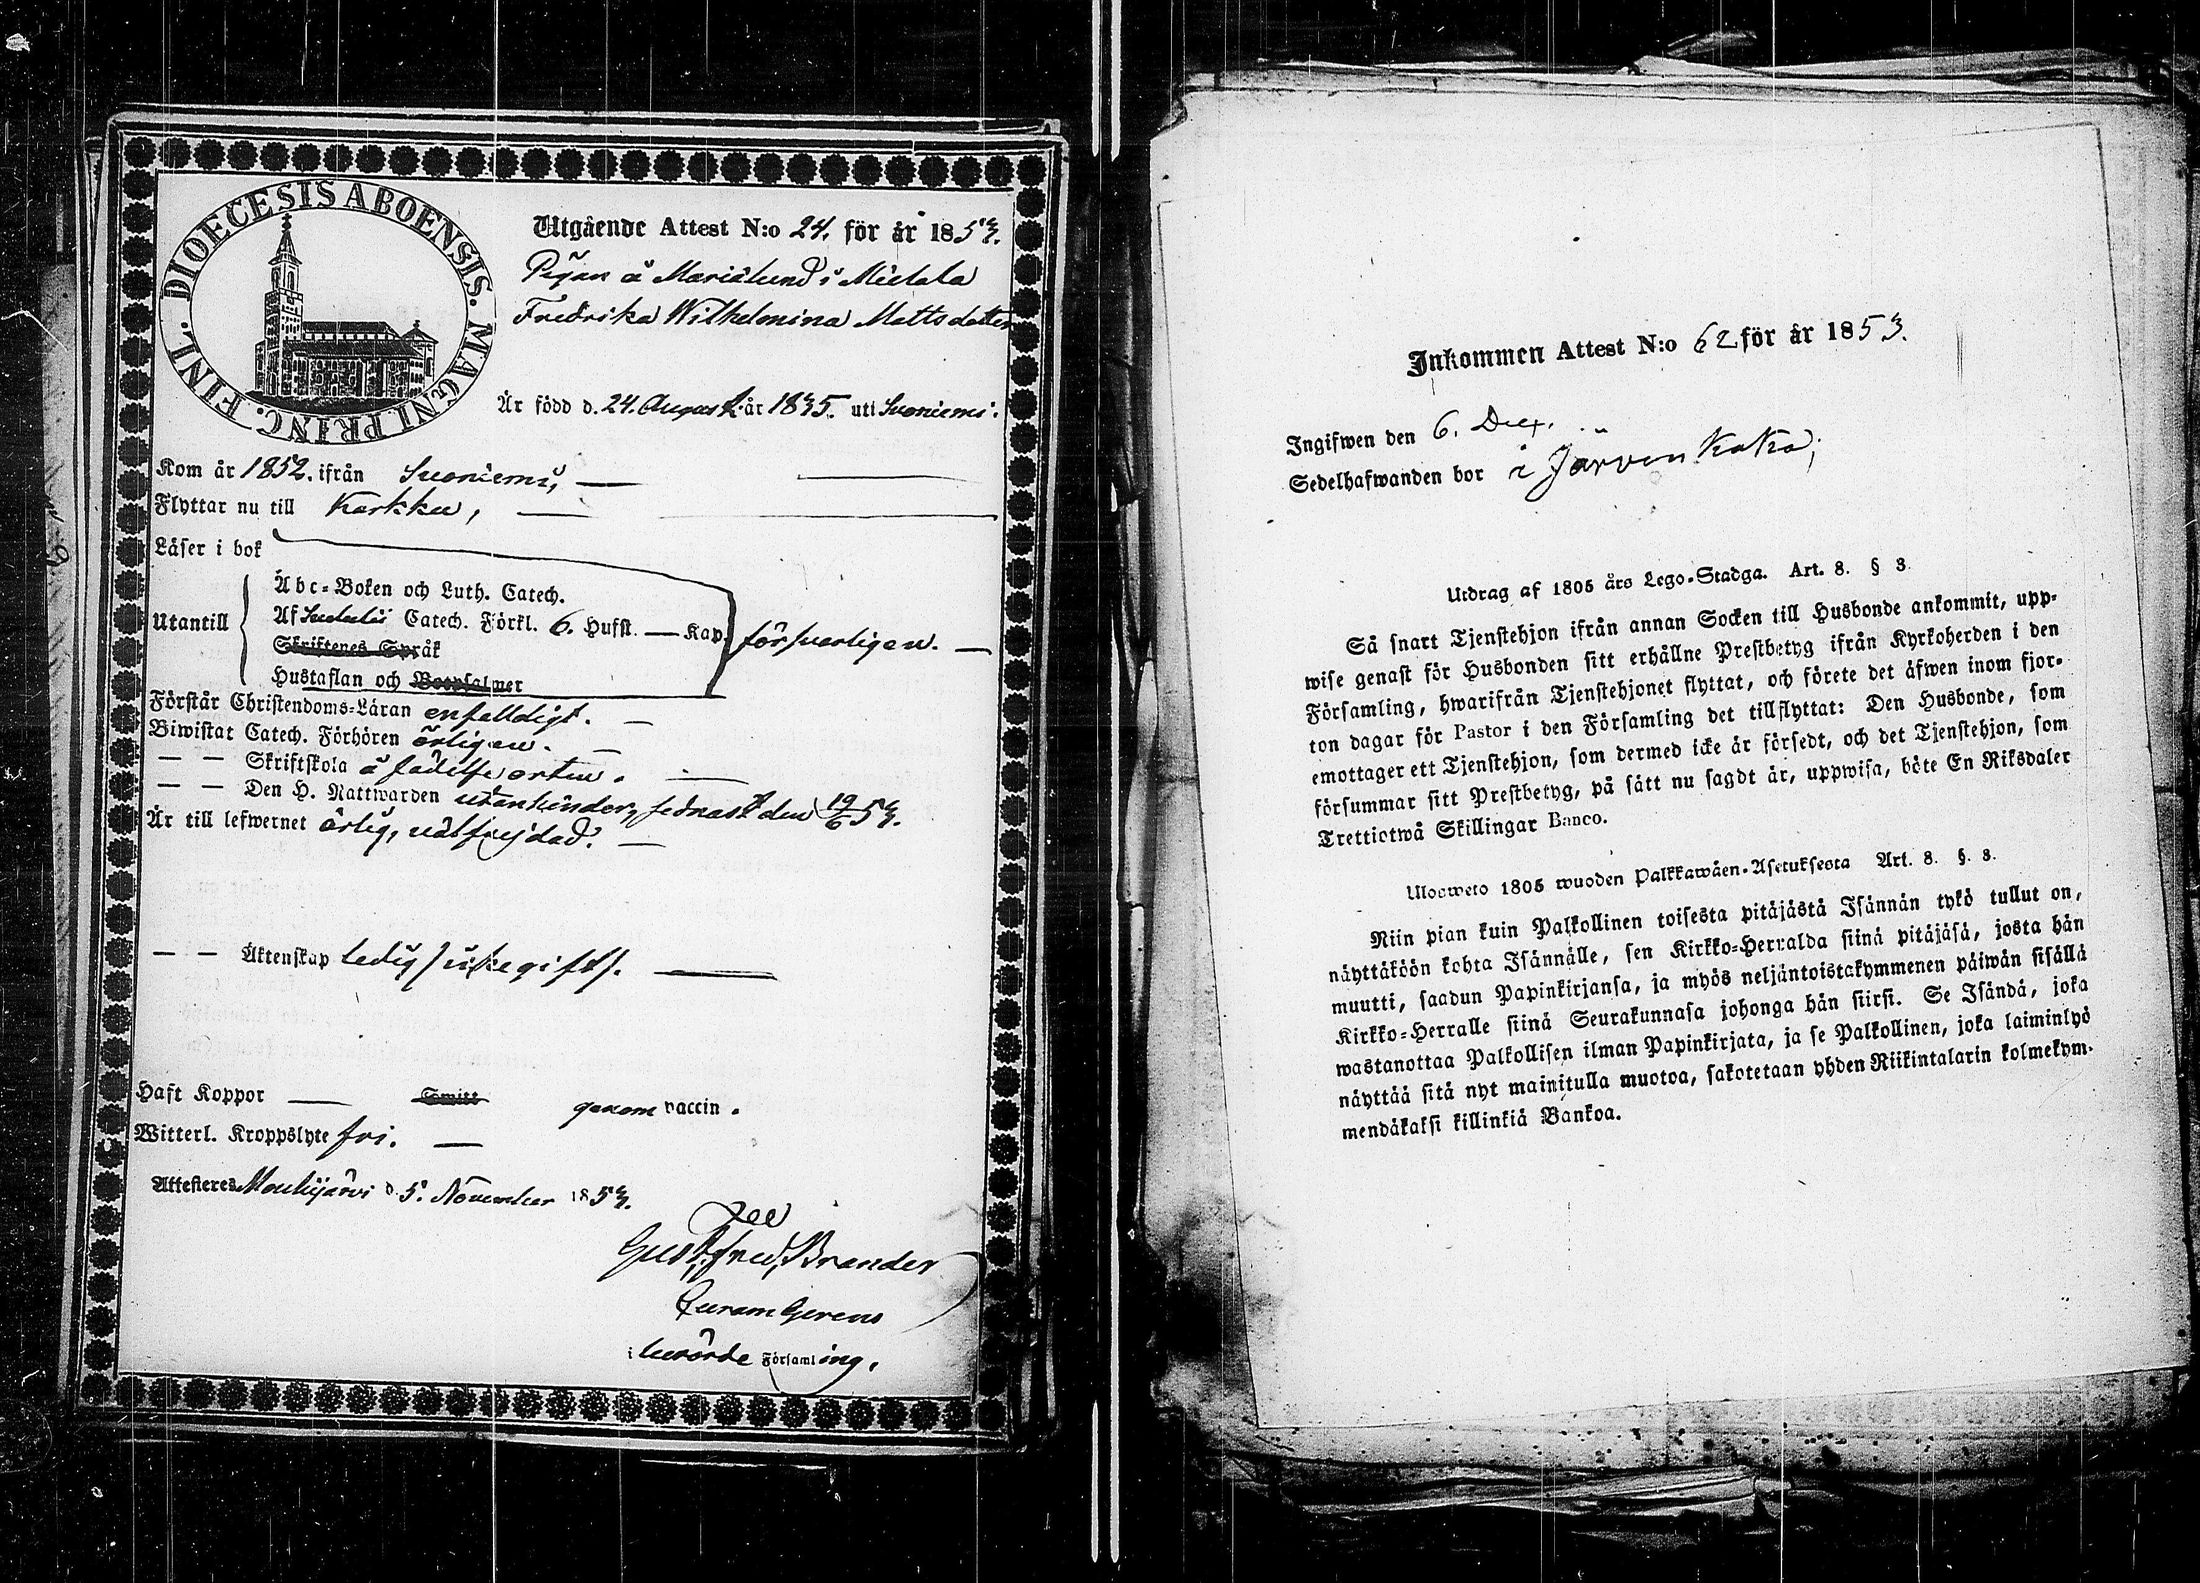 DIOECESIS ABOENSIS. MAGNI PRINC. FINL.
Utgående Attest N:o 24. för år 1853.
Pigan å Marialund i Mielala
Fredrika Wilhelmina Mattsdotter
Är född d. 24. August. år 1835. uti Suoniemi.
Kom år 1852. ifrån Suoniemi, —
Flyttar nu till Karkku, —
Läser i bok
Utantill
Abc-Boken och Luth. Catech.
Af Svebelii Catech. Förkl. 6. Hufst. — Kap. försvarligen. —
Skriftenes Språk
Hustaflan och Botpsalmer
Förstår Christendoms-Läran enfaldigt. —
Biwistat Catech. Förhören årligen. —
— — Skriftskola å födelseorten. —
— — Den H. Nattwarden utan hinder, sednast den 19/6 53.
Är till lefwernet ärlig, välfrejdad. —
— — Äktenskap ledig / icke gift /. —
Haft Koppor — Smitt genom vaccin.
Witterl. Kroppslyte fri. —
Attesteras Mouhijärvi d. 5. November 1853.
Gust. Fred. Brander
Curam Gerens
i berörde Församling.
Inkommen Attest N:o 62 för år 1853.
Ingifwen den 6. Dec.
Sedelhafwanden bor i Järven Kaka,
Utdrag af 1805 års Lego-Stadga. Art. 8. § 3
Så snart Tjenstehjon ifrån annan Socken till Husbonde ankommit, upp-
wise genast för Husbonden sitt erhållne Prestbetyg ifrån Kyrkoherden i den
Församling, hwarifrån Tjenstehjonet flyttat, och förete det äfwen inom fjor-
ton dagar för Pastor i den Församling det tillflyttat: Den Husbonde, som
emottager ett Tjenstehjon, som dermed icke är försedt, och det Tjenstehjon, som
försummar sitt Prestbetyg, på sätt nu sagdt är, uppwisa, böte En Riksdaler
Trettiotwå Skillingar Banco.
Ulosweto 1805 wuoden Palkkawäen-Asetuksesta Art. 8. §. 3.
Niin pian kuin Palkollinen toisesta pitäjästä Isännän tykö tullut on,
näyttäköön kohta Isännälle, sen Kirkko-Herralda siinä pitäjäsä, josta hän
muutti, saadun Papinkirjansa, ja myös neljäntoistakymmenen päiwän sisällä
Kirkko-Herralle siinä Seurakunnasa johonga hän siirsi. Se Isändä, joka
wastanottaa Palkollisen ilman Papinkirjata, ja se Palkollinen, joka laiminlyö
näyttää sitä nyt mainitulla muotoa, sakotetaan yhden Riikintalarin kolmekym-
mendäkaksi killinkiä Bankoa.